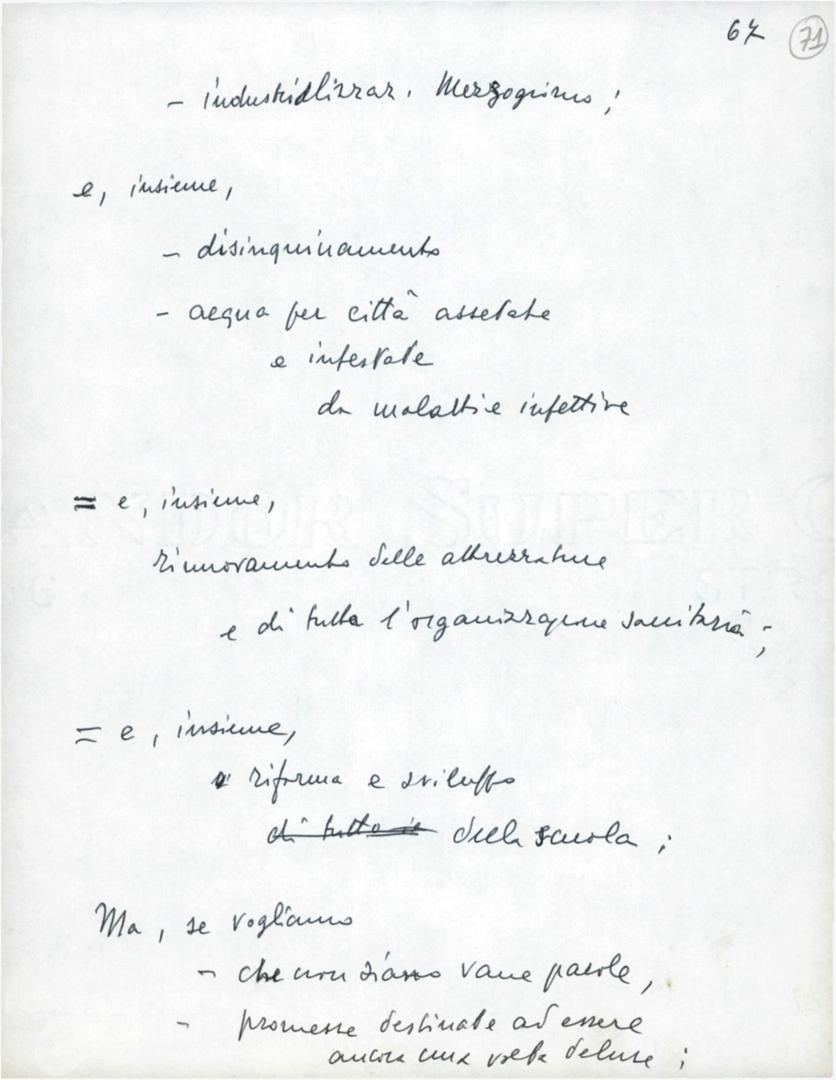 67 71
- industrializzaz. Mezzogiorno ;
e, insieme,
- disinquinamento
- acqua per città assetate
e infestate
da malattie infettive
= e, insieme,
rinnovamento delle attrezzature
e di tutta l'organizzazione sanitaria ;
= e, insieme,
riforma e sviluppo
di tutto il della scuola ;
Ma, se vogliamo
- che non siano vane parole,
- promesse destinate ad essere
ancora una volta deluse ;